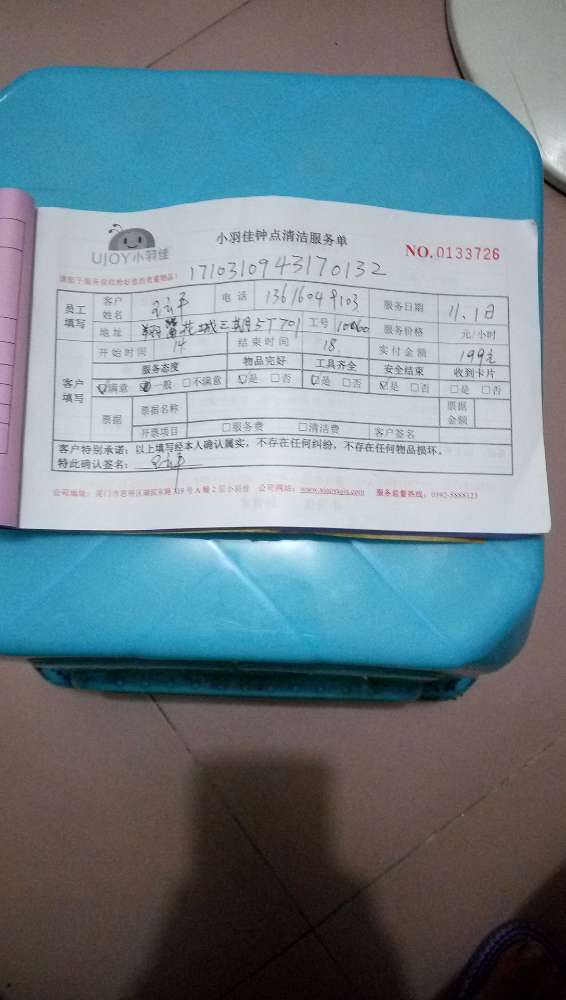 UJOY小羽佳
小羽佳钟点清洁服务单
NO.0133726
1710310943170132
员工填写 客户姓名 电话 13616049103 服务日期 11.1日
地址 翔鹭花城三期57701 工号 10060 服务价格 元/小时
开始时间 14 结束时间 18 实付金额 199元
客户填写 服务态度 物品完好 工具齐全 安全结束 收到卡片
☑满意 一般 □不满意 ☑是 □否 ☑是 □否 ☑是 □否 □是 □否
票据 票据名称 票据金额
开票项目 □服务费 □清洁费 客户签名
客户特别承诺：以上填写经本人确认属实，不存在任何纠纷，不存在任何物品损坏。
特此确认签名：
公司地址：厦门市思明区湖滨东路319号A幢2层小羽佳 公司网站： 服务监督热线：0592-5888123